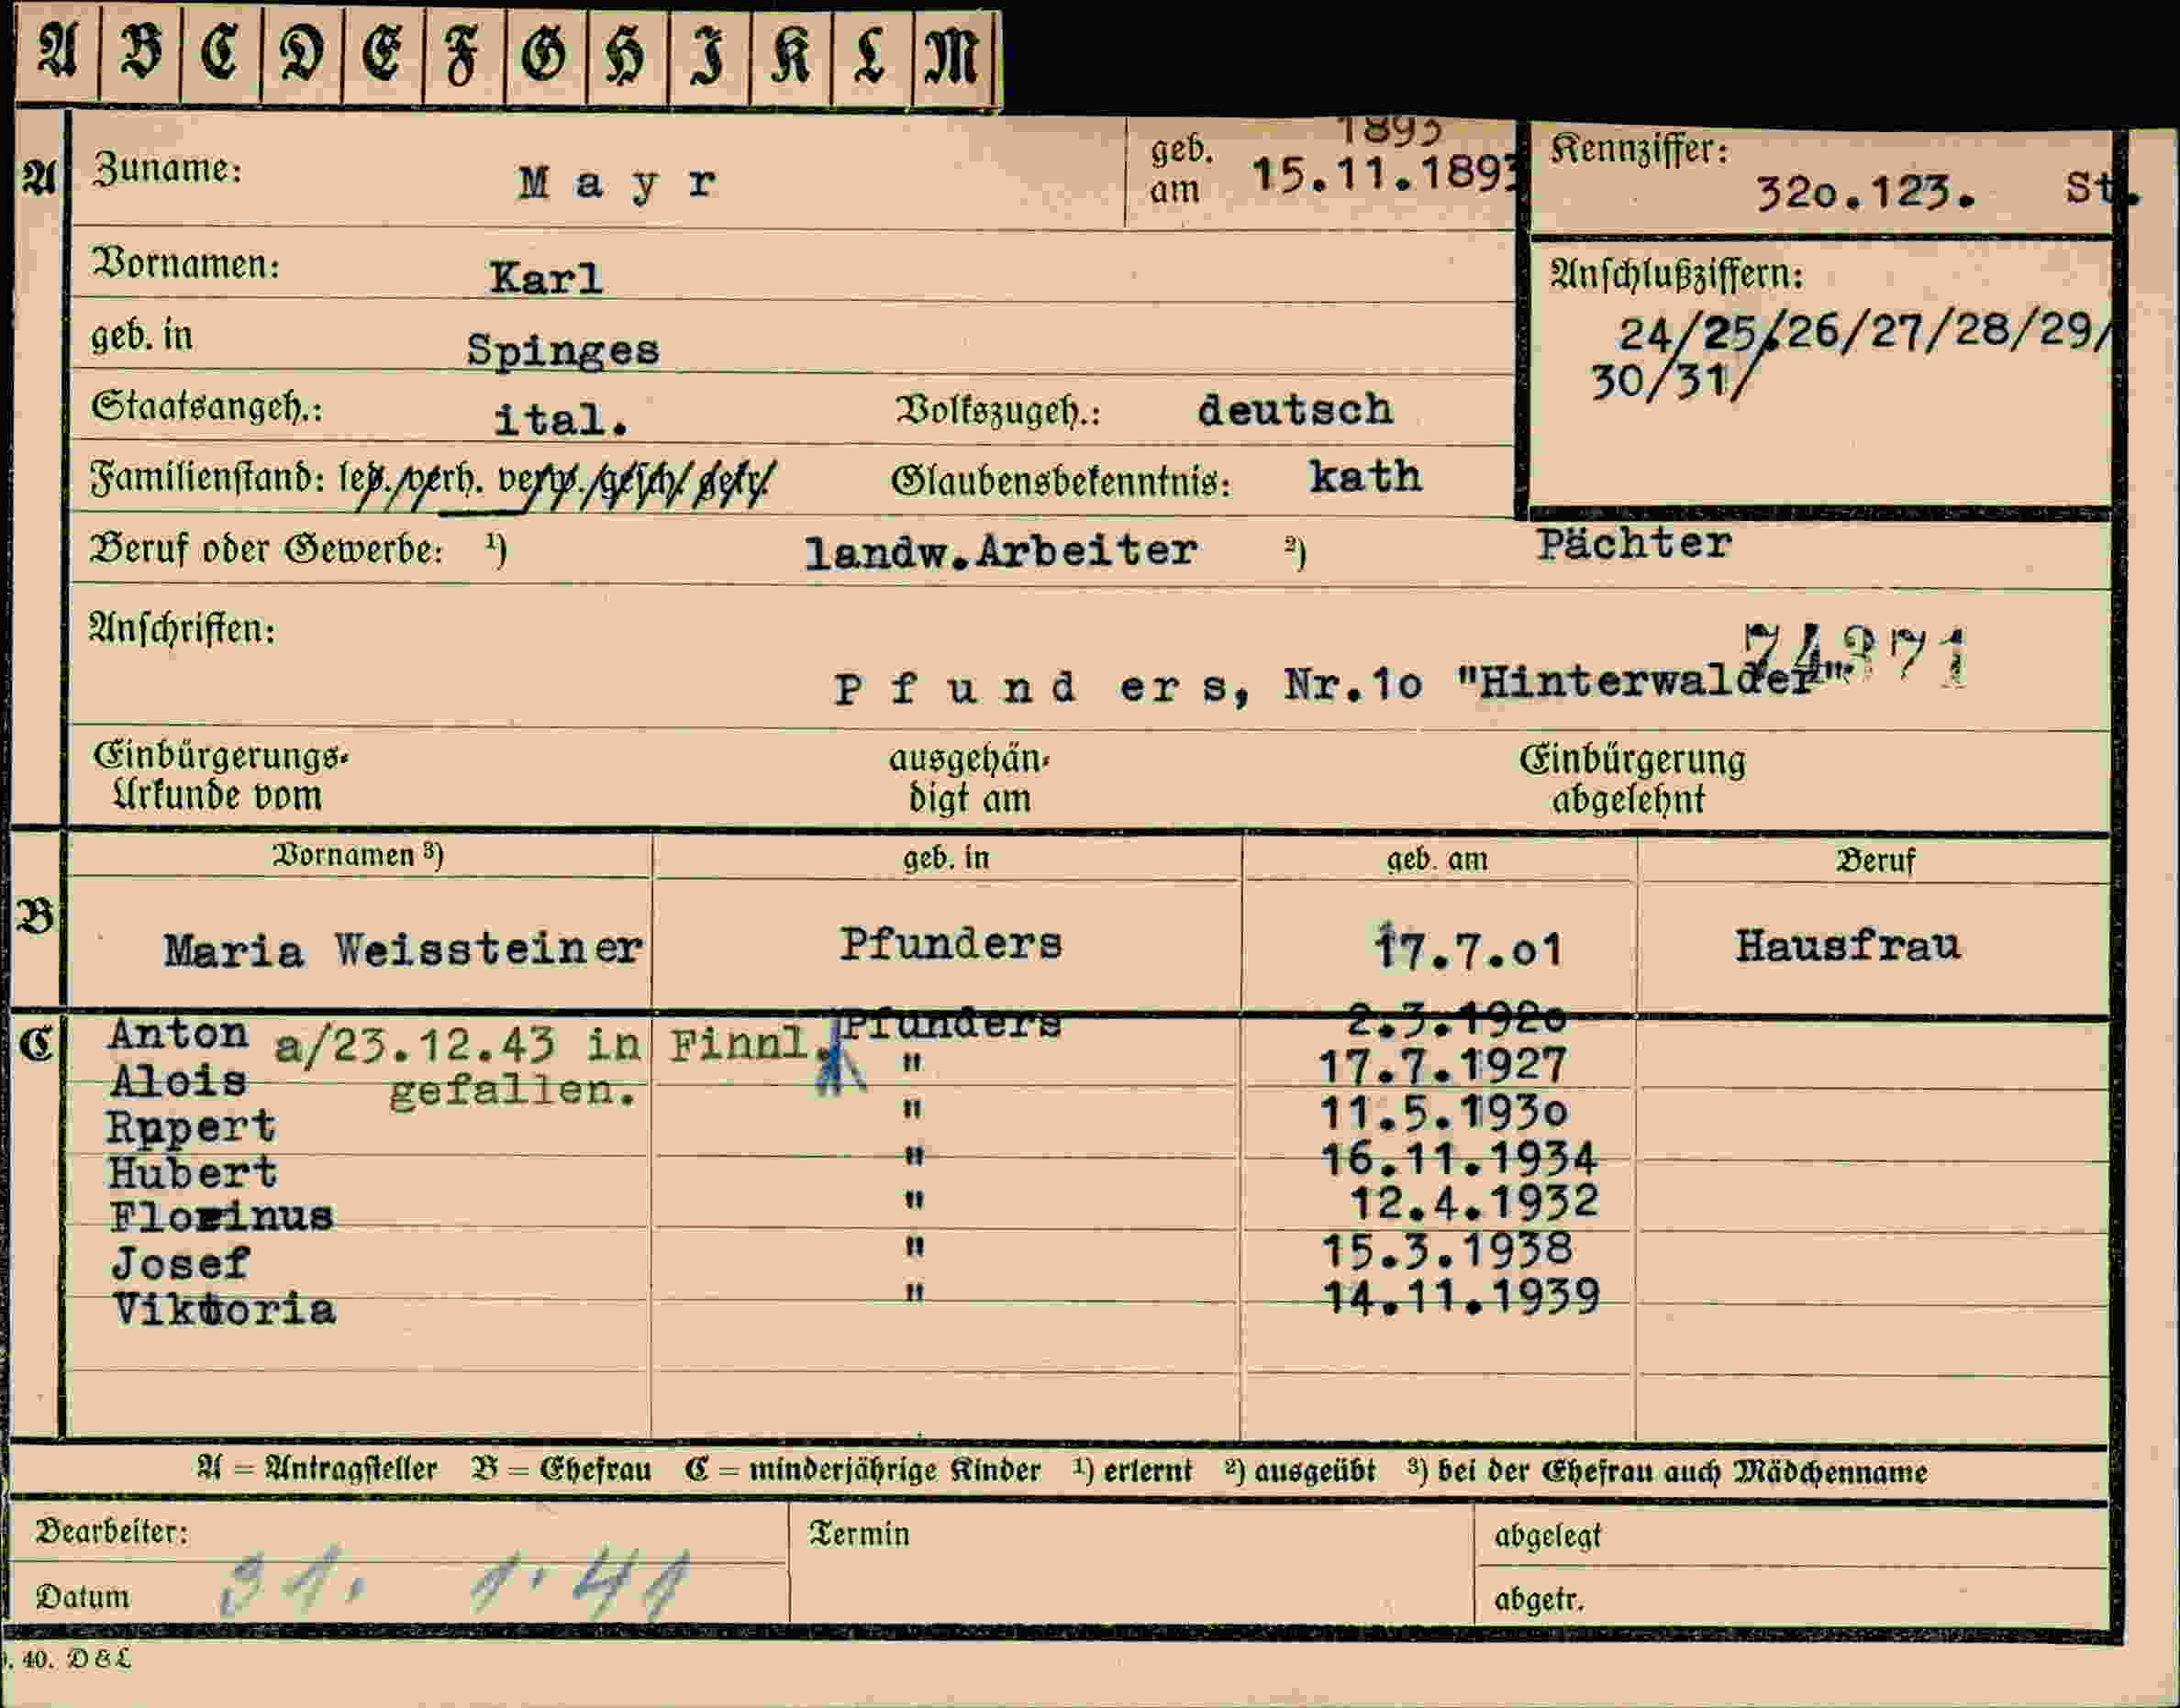 A B C D E F G H I K L M
A Zuname: M a y r geb. am 1893 15.11.1893 Kennziffer: 32o.123. St.
Vornamen: Karl Anschlußziffern:
geb. in Spinges 24/25/26/27/28/29/
30/31/
Staatsangeh.: ital. Volkszugeh.: deutsch
Familienstand: led./verh. verw./gesch/ getr. Glaubensbekenntnis: kath
Beruf oder Gewerbe: ¹) landw.Arbeiter ²) Pächter
Anschriften: 74371
P f u n d e r s, Nr.1o "Hinterwalder"
Einbürgerungs- ausgehän- Einbürgerung
Urkunde vom digt am abgelehnt
Vornamen ³) geb. in geb. am Beruf
B Maria Weissteiner Pfunders 17.7.o1 Hausfrau
C Anton a/23.12.43 in Finnl. Pfunders 2.3.192o
gefallen.
Alois " 17.7.1927
Rupert " 11.5.193o
Hubert " 16.11.1934
Florinus " 12.4.1932
Josef " 15.3.1938
Viktoria " 14.11.1939
A = Antragsteller B = Ehefrau C = minderjährige Kinder ¹) erlernt ²) ausgeübt ³) bei der Ehefrau auch Mädchenname
Bearbeiter: Termin abgelegt
Datum 31. 1. 41 abgetr.
. 40. D & L